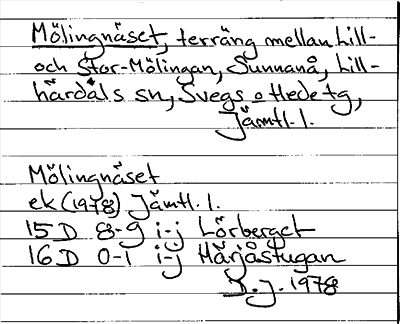 Mölingnäset, terräng mellan Lill-
och Stor-Mölingan, Sunnanå, Lill-
härdals sn, Svegs o Hede tg,
Jämtl. l.
Mölingnäset
ek (1978) Jämtl. l.
15 D 8-9 i-j Lörberget
16 D 0-1 i-j Härjåstugan
D.J. 1978